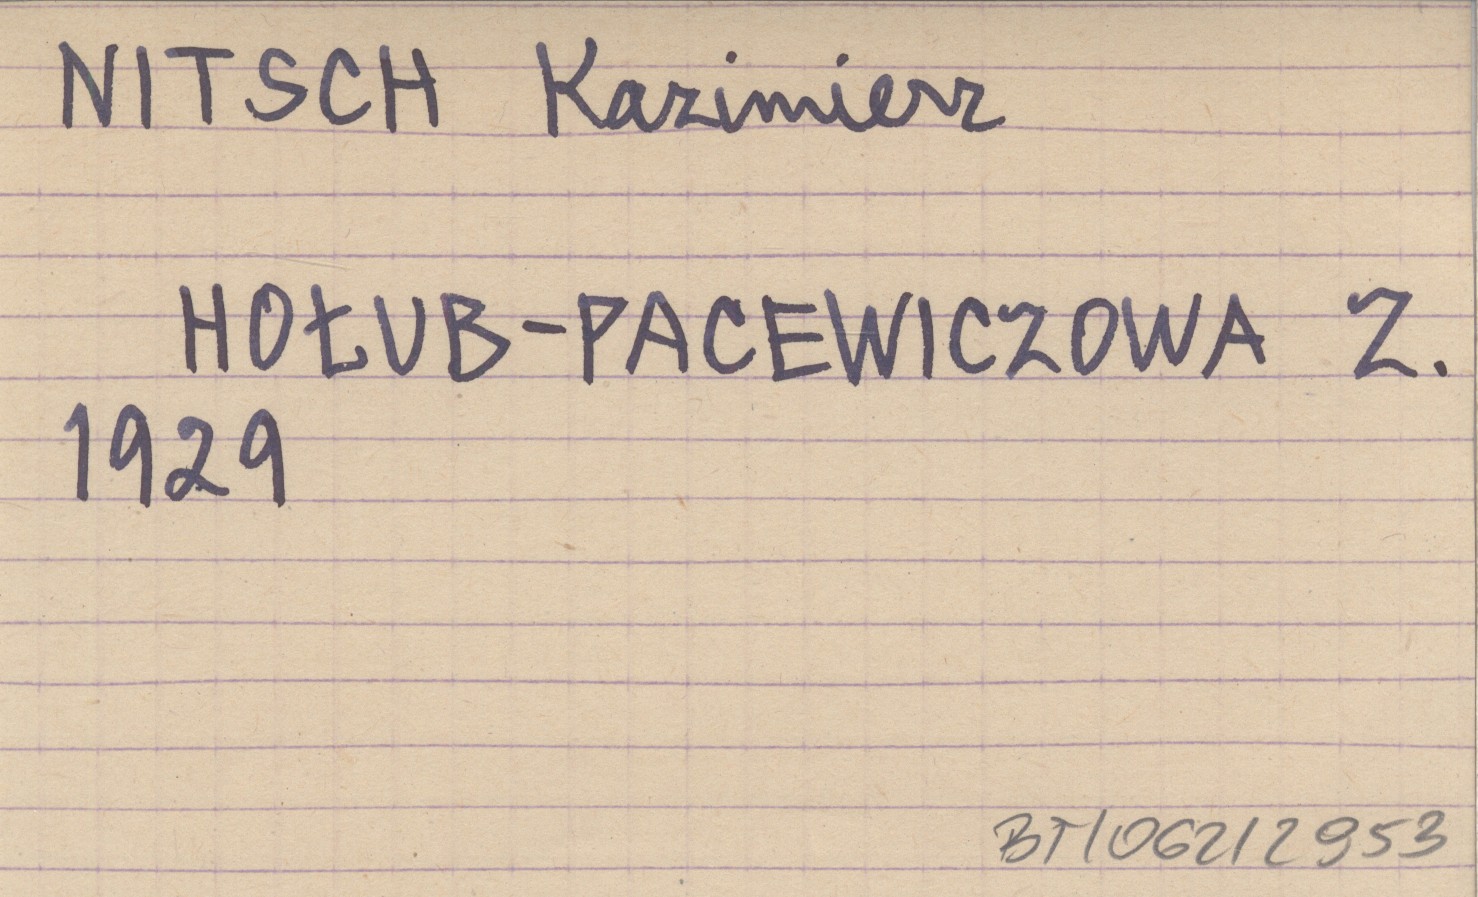 NITSCH Kazimierz
HOŁUB-PACEWICZOWA Z.
1929
BT/062/2953